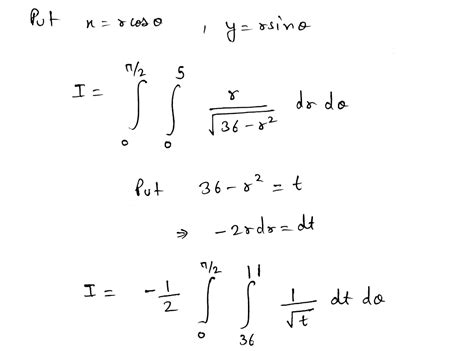 Put x = r cosθ , y = r sinθ
I = ∫₀^{π/2} ∫₀^5 r / √(36 − r²) dr dθ
Put 36 − r² = t
⇒ −2r dr = dt
I = −1/2 ∫₀^{π/2} ∫₃₆^{11} 1/√t dt dθ